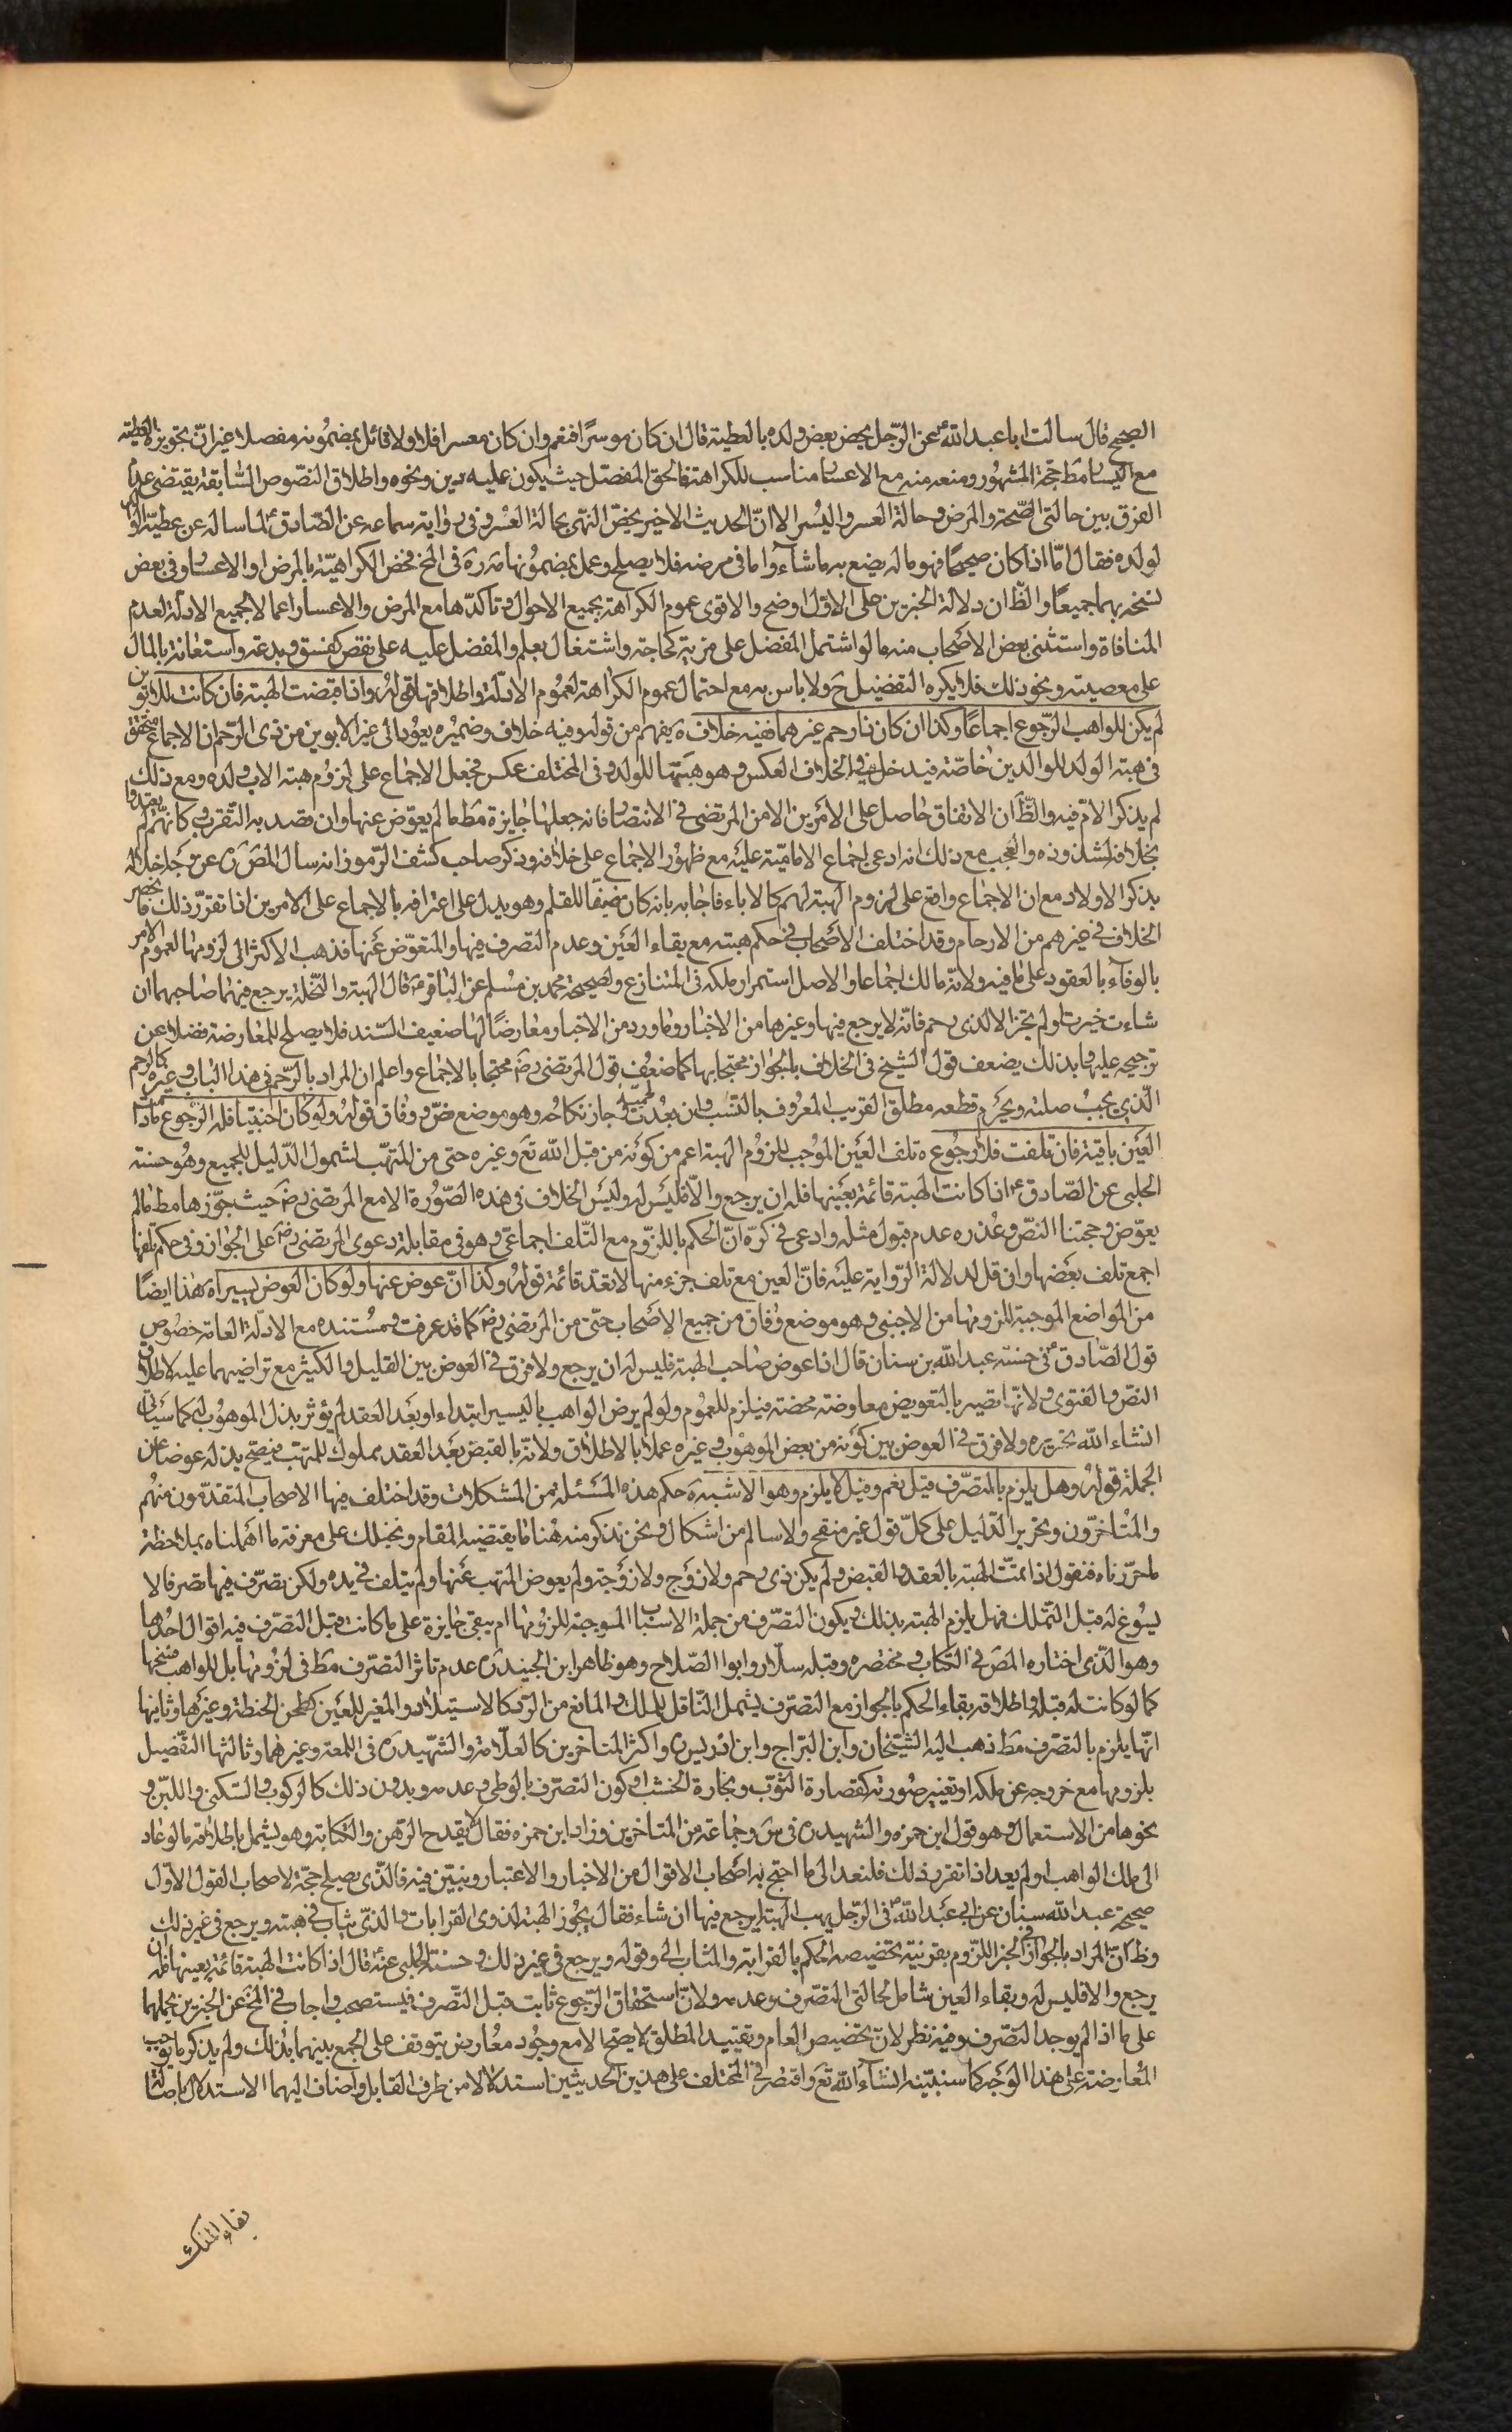 الصحيح قال سالت ابا عبد الله ع عن الرّجل يخص بعض ولده بالعطية قال ان كان موسرًا فنعم وان كان معسرا فلا ولا قائل بمضمونه مفصلا غير انّ تجويزه العطيّة
مع اليسار مط حجّة المشهور ومنعه منه مع الاعسار مناسب للكراهة فالحق المفصّل حيث يكون عليه دين ونحوه واطلاق النصّوص السّابقة يقتضى عدم
الفرق بين حالتى الصّحة والمرض وحالة العسر واليُسر الا انّ الحديث الاخير يخصّ النهى بحالة العسر وفى رواية سماعه عن الصّادق ع لما ساله عن عطيّة الوالد
لولده فقال امّا اذا كان صحيحًا فهو ماله يصنع به ما شآء واما فى مرضه فلا يصلح وعمل بمضمونها مَرة فى المخ فخص الكراهيّة بالمرض او الاعسار وفى بعض
نسخه بهما جميعًا والظّ ان دلالة الخبرين على الاوّل اوضح والاقوى عموم الكراهة بجميع الاحوال وتاكدّها مع المرض والاعسار اعمالا لجميع الادلّة لعدم
المنافاة واستثنى بعض الاصحاب منه ما لو اشتمل المفضل على مزيّة كحاجة واشتغال بعلم والمفضل عليه على نقص كفسق وبدعة واستعانة بالمال
على معصيته ونحو ذلك فلا يكره التفضيل ح ولا باس به مع احتمال عموم الكراهة لعموم الادلّة واطلاقها قولهُ واذا قبضت الهبة فان كانت للابوين
لم يكن للواهب الرّجوع اجماعًا وكذا ان كان ذا رحم غيرهما ففيه خلاف ه يفهم من قوله وفيه خلاف وضميره يعوُد الى غير الابوين من ذى الرّحم ان الاجماع متحقق
فى هبة الولد للوالدين خاصّة فيدخل فى الخلاف العكس وهو هبتهما للولد وفى المختلف عكس فجعل الاجماع على لزوم هبة الاب ولده ومع ذلك
لم يذكر الامّ فيه والظّ ان الاتفاق حاصل على الامرين الا من المرتضى فى الانتصار فانه جعلها جايزة مطَ ما لم يعوّض عنها وان قصد به التّقرب وكانهم لم يعتدوا
بخلافه لشذوذه والعجب مع ذلك انه ادعى اجماع الاماميّة عليه مع ظهوُر الاجماع على خلافه وذكر صاحب كشف الرّموز انه سال المصَ ره عن وجه اخلاله
بذكر الاولاد مع ان الاجماع واقع على لزوم الهبة لهم كالاباء فاجابه بانه كان ضيقًا للقلم وهو يدل على اعترافه بالاجماع على الامرين اذا تقرّر ذلك فانحصر
الخلاف فى غيرهم من الارحام وقد اختلف الاصحاب فى حكم هبته مع بقاء العين وعدم التصرف فيها والتعوّض عنها فذهب الاكثر الى لزومها لعموم الامر
بالوفاء بالعقود على ما فيه ولانه مالك اجماعا والاصل استمرار ملكه فى المتنازع ولصحيحة محمد بن مسلم عن الباقر ع قال الهبة والنّحلة يرجع فيهما صاحبهما ان
شاءت حيزت او لم تحز الا لذى رحم فانّه لا يرجع فيها وغيرها من الاخبار وما ورد من الاخبار معارضًا لها ضعيف السّند فلا يصلح للمعارضة فضلا عن
ترجيحه عليها وبذلك يضعف قول الشيخ فى الخلاف بالجواز محتجا بها كما ضعُف قول المرتضى رضَ محتجا بالاجماع واعلم ان المراد بالرّحم فى هذا الباب وغيره كالرحم
الّذى يجبُ صلته ويحرَم قطعه مطلق القريب المعروف بالنّسَب وان بعُدت لحمته وجاز نكاحُه وهو موضع نصّ ووفاق قولهُ ولو كان اجنبيا فله الرّجوع ما دامت
العَين باقية فان تلفت فلا رجُوع ه تلف العَين الموُجب للزوُم الهبة اعم من كونه من قبل الله تعَ وغيره حتى من المتّهب لشمول الدّليل للجميع وهُو حسنة
الحلبى عن الصّادق ع اذا كانت الهبة قائمة بعَينها فله ان يرجع والّا فليَس له وليَس الخلاف فى هذه الصّوُرة الا مع المرتضى رضَ حيث جوّزها مطَ ما لم
يعوّض وحجتنا النصّ وعُذره عدم قبول مثله وادعى فى كرّه انّ الحكم باللزّوم مع التّلف اجماعىّ وهو فى مقابلة دعوى المرتضى رضَ على الجواز وفى حكم تلفها
اجمع تلف بعَضها وان قل لدلالة الرّواية عليَه فانّ العين مع تلف جزء منها لا تعدّ قائمة قولهُ وكذا انّ عوض عنها ولو كان العوض يسيرا ه هذا ايضًا
من المواضع الموجبة للزومها من الاجنبى وهو موضع وفاق من جميع الاصَحاب حتّى من المرتضى رضَ كما قد عرف ومُستنده مع الادلّة العامّة خصُوص
قول الصّادق ع فى حسنة عبد الله بن سنان قال اذا عوض صَاحب الهبة فليس له ان يرجع ولا فرق فى العوض بين القليل والكثير مع تراضيهما عليه لاطلاق
النصّ والفتوى ولانّها تصير بالتعويض معاوضة محضة فيلزم للعموُم ولو لم يرض الواهب باليسير ابتداء او بعَد العقد لم يؤثر بذل الموهوُب له كما سَياتى
انشاء الله تحريره ولا فرق فى العوض بين كونه من بعض الموهوُب وغيره عملا بالاطلاق ولانّه بالقبض بعَد العقد مملوك للمتهب فيصح بذله عوضا عن
الجملة قولهُ وهل يلزم بالتصرّف قيل نعم وقيل لا يلزم وهو الاشبه ه حكم هذه المسَئلة من المشكلات وقد اختلف فيها الاصحاب المتقدّمون منهُم
والمتاخرّون وتحرير الدّليل على كلّ قول غير منقح ولا سالم من اشكال ونحن نذكر منه هُنا ما يقتضيه المقام ونحيلك على معرفة ما اهَملناه بملاحظة
ما حرّرناه فنقول اذا تمّت الهبة بالعقد والقبض ولم يكن ذى رحم ولا زوَج ولا زوَجة ولم يعوض المتهب عَنها ولم يتلف فى يده ولكن تصرّف فيها تصرفا لا
يسُوغ له قبل التّملك فهل يلزم الهبة بذلك ويكون التصرّف من جملة الاسباب الموجبة للزوُمها ام يبقى جايزة على ما كانت قبل التّصرّف فيه اقوال احدُها
وهو الّذى اختاره المصَ فى الكتاب وفى مختصره وقبله سلّار وابوا الصّلاح وهو ظاهر ابن الجنيد ره عدم تاثر التصرّف مطَ فى لزُومها بل للواهب فسخها
كما لو كانت له قبله واطلاقه بقاء الحكم بالجواز مع التصرّف يشمل النّاقل للملك والمانع من الردّ كالاستيلاد والمغير للعَين كطحن الحنطة وغيَرها وثانيها
انّها يلزم بالتصرّف مطَ ذهب اليه الشيّخان وابن البرّاج وابن ادريس ره واكثر المتاخرين كالعلّامة والشّهيد ره فى اللمعة وغيرهُما وثالثها التفّصيل
بلزومها مع خروجه عن ملكه او تغيير صُورته كقصارة الثوّب ونجارة الخشب او كون التصرّف بالوطى وعدمه وبدون ذلك كالركوب والسّكنى واللبّس و
نحوها من الاستعمال وهو قول ابن حمزه والشهيد ره فى سَ وجماعة من المتاخرين وزاد ابن حمزه فقال لا يقدح الرّهن والكتابة وهو يشمل باطلاقه ما لو عاد
الى ملك الواهب او لم يعد اذا تقرر ذلك فلنعد الى ما احتج به اصحاب الاقوال من الاخبار والاعتبار ونبيّن فيه فالّذى يصلح حجّة لاصحاب القول الاوّل
صحيحة عبد الله سنان عن ابى عَبد الله ع فى الرّجل يهب الهبة ايرجع فيها ان شاء فقال يجُوز الهبة لذوى القرابات والذّى يثاب فى هبته ويرجع فى غير ذلك
وظَ انّ المراد بالجواز فى الخبر اللزّوم بقرنية تخصيصه الحكم بالقرابة والمثاب الى وقوله ويرجع فى غير ذلك وحسنة الحلبى عنه ع قال اذا كانت الهبة قائمة بعينها فله ان
يرجع والا فليس له وبقاء العين شامل لحالتى التصّرف وعدمه ولانّ استحقاق الرّجوع ثابت قبل التصّرف فيستصحب واجاب فى المخَ عن الخبرين بحملهما
على ما اذا لم يوجد التصرّف وفيه نظر لانّ تخصيص العام وتقييد المطلق لا يصّح الا مع وجُود معُارض يتوقف على الجمع بينهما بذلك ولم يذكر ما توجب
المُعارضة على هذا الوَجه كما سنبيّنه انشآء الله تعَ واقتصر فى المختلف على هذين الحديثين استدلالا من طرف القايل واضاف اليهما الاستدلال باصالة
بقاء الملك